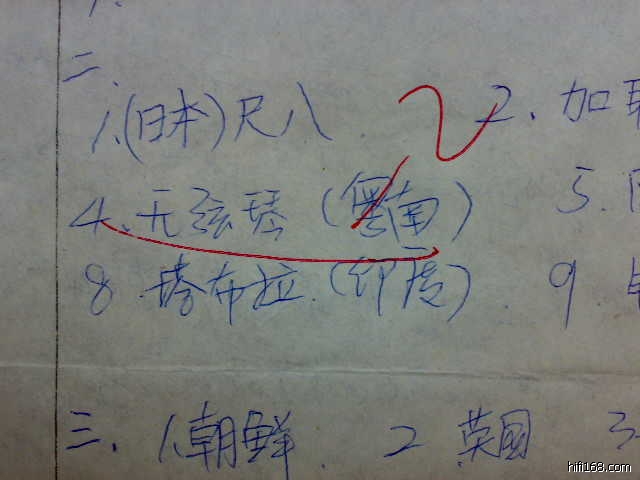 二、
1.(日本)尺八 2、加
4、无弦琴(粤南) 5.
8.塔布拉.(印度). 9
三、1.朝鲜. 2 英国 3.
hifi168.com